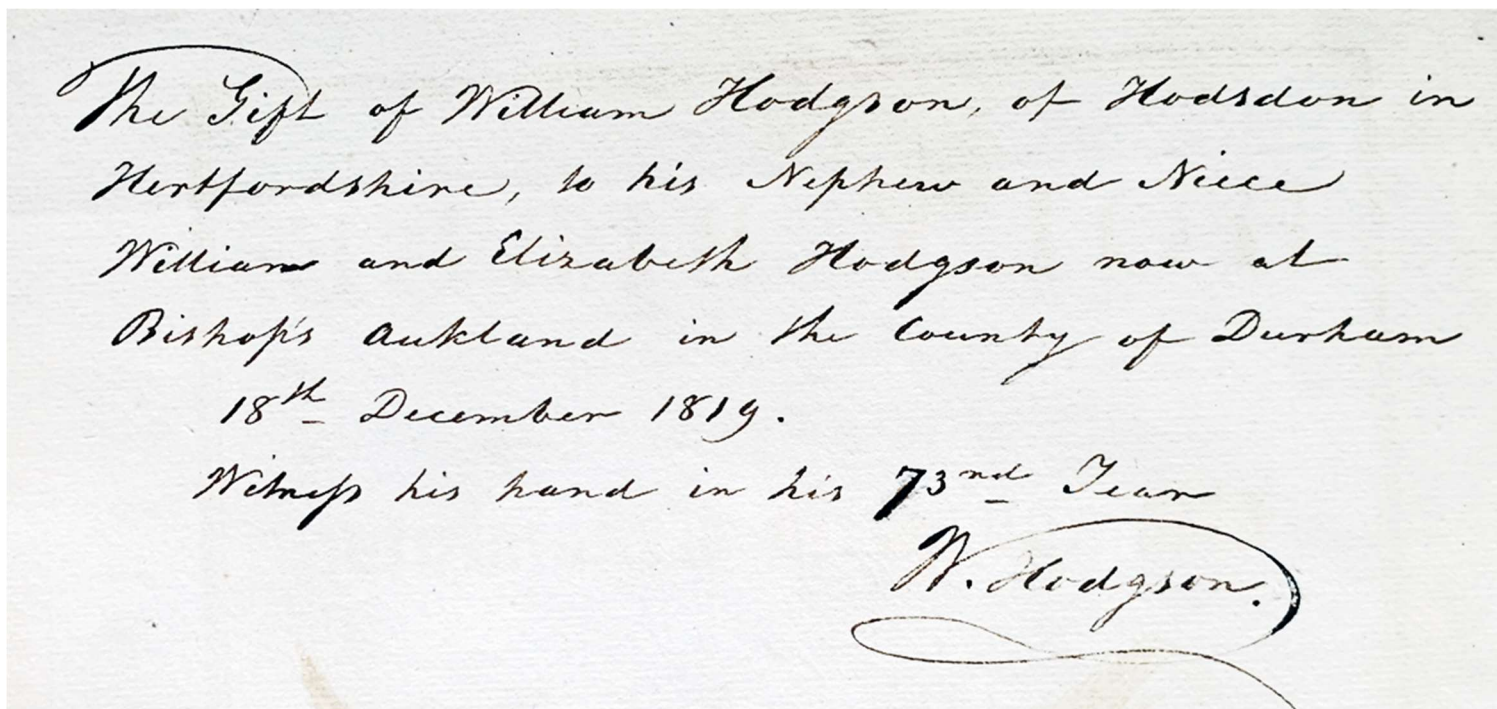 The Gift of William Hodgson, of Hodsdon in
Hertfordshire, to his Nephew and Niece
William and Elizabeth Hodgson now at
Bishop's Aukland in the County of Durham
18th December 1819.
Witness his hand in his 73nd Year
W. Hodgson.